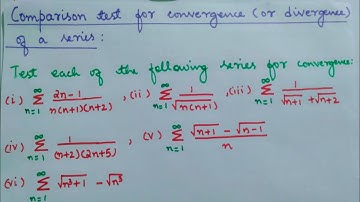 Comparison test for convergence (or divergence)
of a series:
Test each of the following series for convergence:
(i) ∞ Σ n=1 (2n-1)/(n(n+1)(n+2)), (ii) ∞ Σ n=1 1/√(n(n+1)), (iii) ∞ Σ n=1 1/(√(n+1) + √(n+2))
(iv) ∞ Σ n=1 1/((n+2)(2n+5)), (v) ∞ Σ n=1 (√(n+1) - √(n-1))/n
(vi) ∞ Σ n=1 √(n³+1) - √(n³)